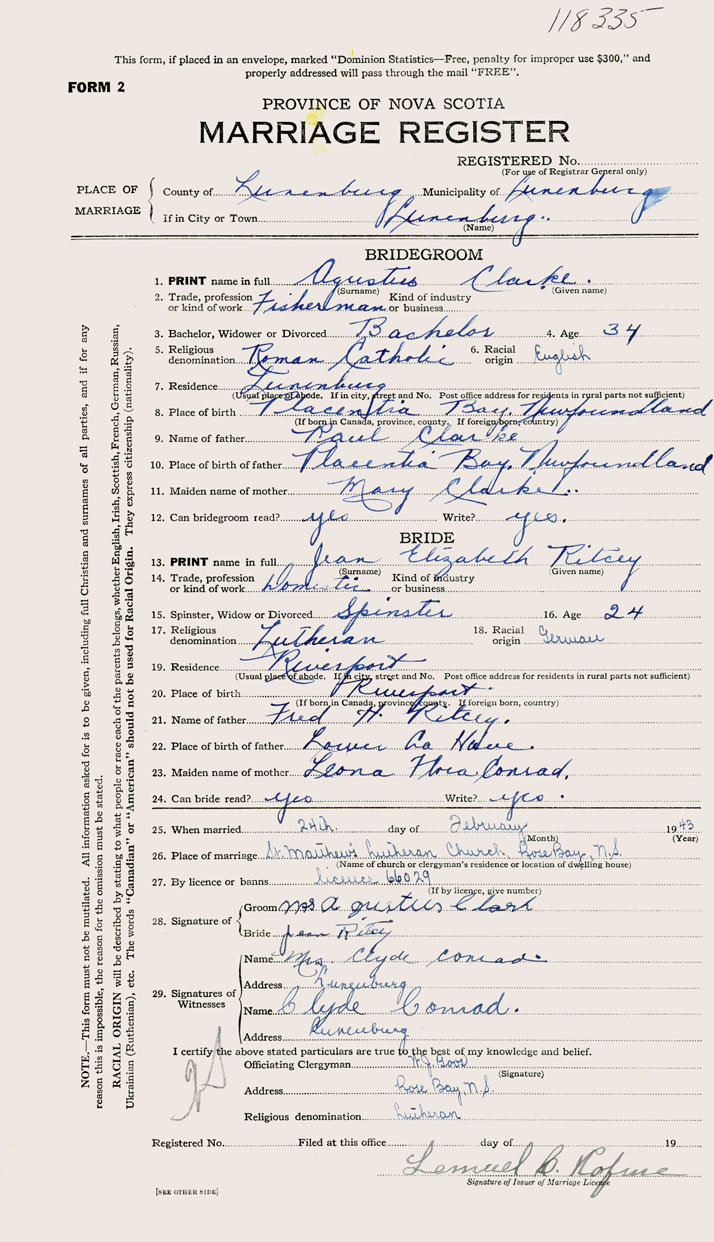 118335
This form, if placed in an envelope, marked "Dominion Statistics—Free, penalty for improper use $300," and
properly addressed will pass through the mail "FREE".
FORM 2
PROVINCE OF NOVA SCOTIA
MARRIAGE REGISTER
REGISTERED No.
(For use of Registrar General only)
PLACE OF MARRIAGE
County of Lunenburg Municipality of Lunenburg
If in City or Town Lunenburg
(Name)
BRIDEGROOM
1. PRINT name in full Agustius Clarke.
(Surname) (Given name)
2. Trade, profession or kind of work Fisherman Kind of industry or business
3. Bachelor, Widower or Divorced Bachelor 4. Age 34
5. Religious denomination Roman Catholic 6. Racial origin English
7. Residence Lunenburg
(Usual place of abode. If in city, street and No. Post office address for residents in rural parts not sufficient)
8. Place of birth Placentia Bay, Newfoundland
(If born in Canada, province, county. If foreign born, country)
9. Name of father Paul Clarke
10. Place of birth of father Placentia Bay, Newfoundland
11. Maiden name of mother Mary Clarke.
12. Can bridegroom read? yes Write? yes.
BRIDE
13. PRINT name in full Jean Elizabeth Ritcey
(Surname) (Given name)
14. Trade, profession or kind of work Domestic Kind of industry or business
15. Spinster, Widow or Divorced Spinster 16. Age 24
17. Religious denomination Lutheran 18. Racial origin German
19. Residence Riverport
(Usual place of abode. If in city, street and No. Post office address for residents in rural parts not sufficient)
20. Place of birth Riverport.
(If born in Canada, province, county. If foreign born, country)
21. Name of father Fred H. Ritcey.
22. Place of birth of father Lower La Have.
23. Maiden name of mother Leona Flora Conrad.
24. Can bride read? yes Write? yes.
25. When married 24th. day of February 1943
(Month) (Year)
26. Place of marriage St. Matthew's Lutheran Church, Rose Bay, N.S.
(Name of church or clergyman's residence or location of dwelling house)
27. By licence or banns licence 66029
(If by licence, give number)
28. Signature of
Groom Mr Agustius Clark
Bride Jean Ritcy
29. Signatures of Witnesses
Name Mrs. Clyde Conrad.
Address Lunenburg
Name Clyde Conrad.
Address Lunenburg
I certify the above stated particulars are true to the best of my knowledge and belief.
Officiating Clergyman
(Signature)
Address Rose Bay, N.S.
Religious denomination Lutheran
Registered No. Filed at this office day of 19
Lemuel C.
Signature of Issuer of Marriage License
[SEE OTHER SIDE]
NOTE.—This form must not be mutilated. All information asked for is to be given, including full Christian and surnames of all parties, and if for any
reason this is impossible, the reason for the omission must be stated.
RACIAL ORIGIN will be described by stating to what people or race each of the parents belongs, whether English, Irish, Scottish, French, German, Russian,
Ukrainian (Ruthenian), etc. The words "Canadian" or "American" should not be used for Racial Origin. They express citizenship (nationality).